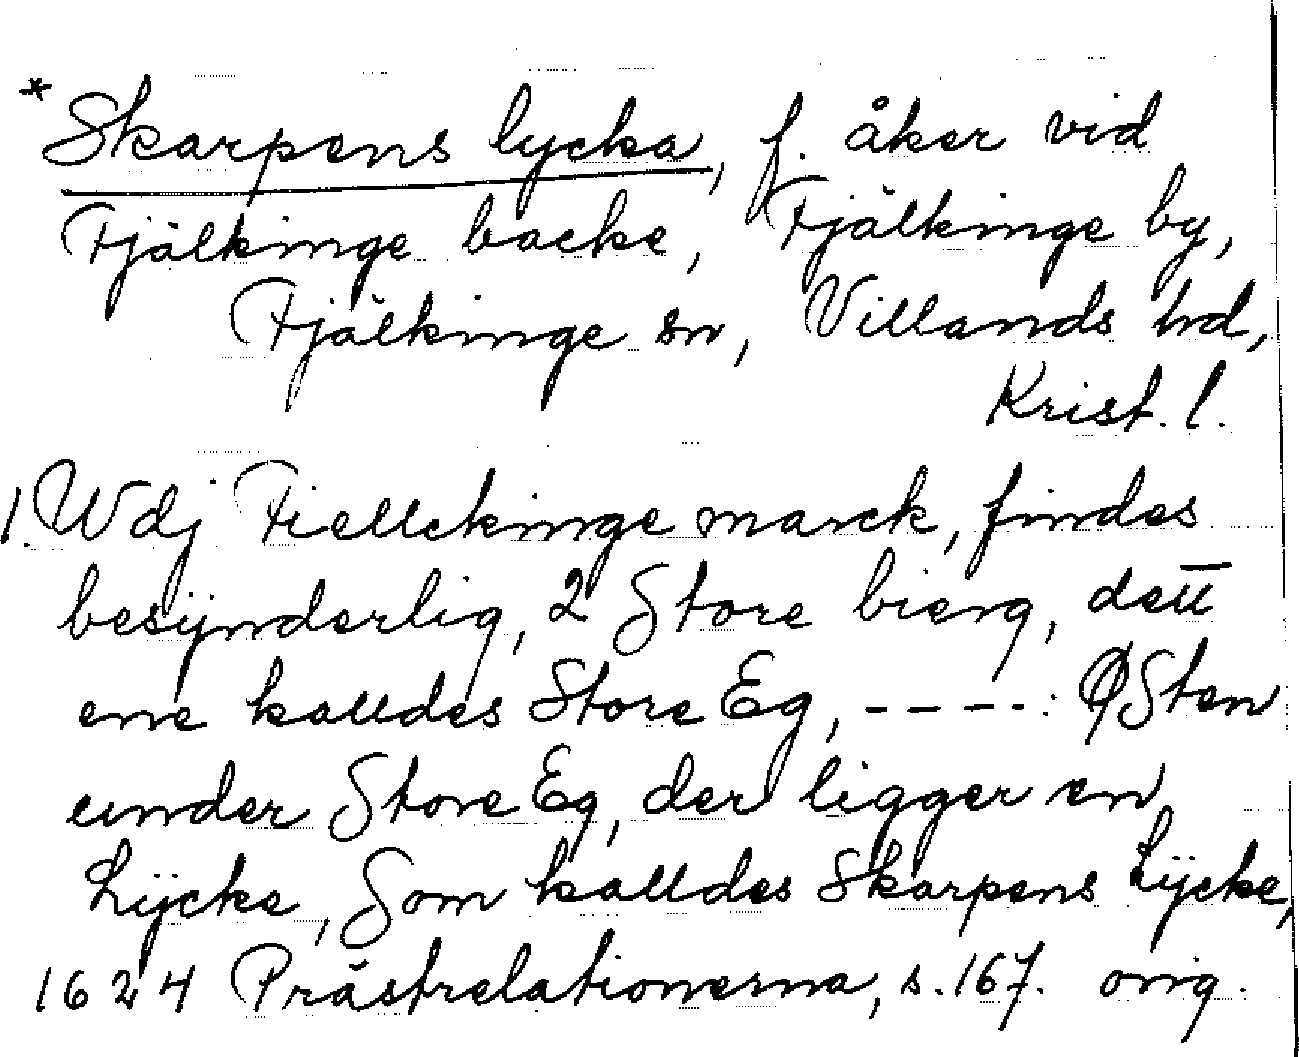 *Skarpens lycka, f. åker vid
Fjälkinge backe, Fjälkinge by,
Fjälkinge sn, Villands hd,
Krist. l.
1. Wdj Fiellckinge marck, findes
besÿnderlig, 2 Store bierg, dett
ene kalldes Store Eg, ----: ØSten
under Store Eg, der ligger en
Lÿcke, Som kalldes Skarpens Lÿcke,
1624 Prästrelationerna, s. 167. orig.